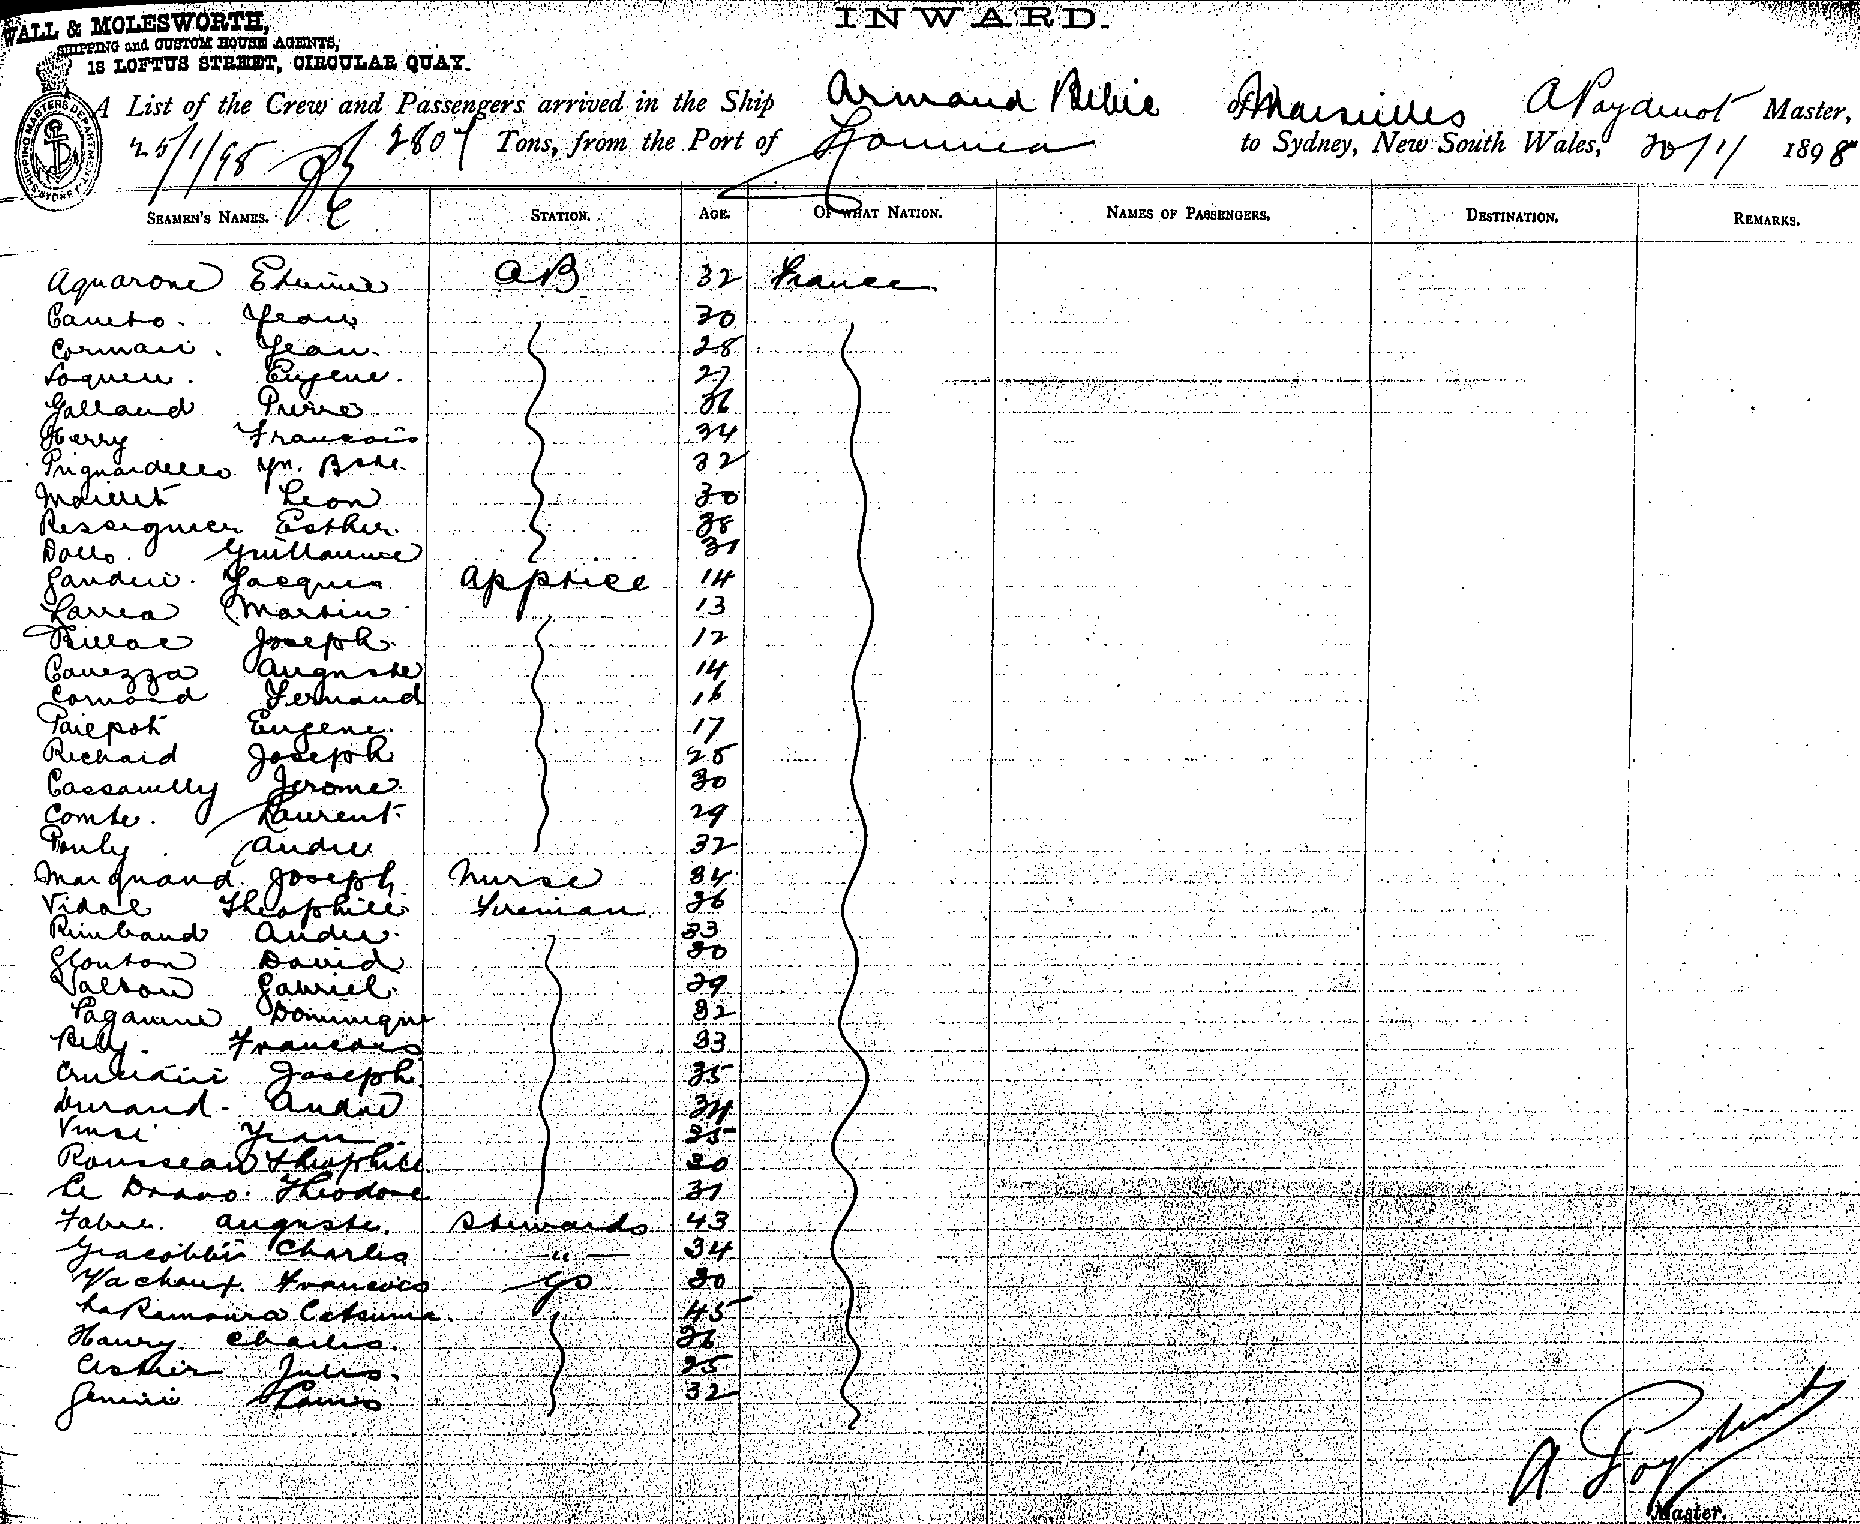 WALL & MOLESWORTH,
SHIPPING and CUSTOM HOUSE AGENTS,
18 LOFTUS STREET, CIRCULAR QUAY.
INWARD.
A List of the Crew and Passengers arrived in the Ship Armand Behic of Marseilles A Poydenot Master,
25/1/98 2807 Tons, from the Port of Noumea to Sydney, New South Wales, 20/1/ 1898
SEAMEN'S NAMES. STATION. AGE. OF WHAT NATION. NAMES OF PASSENGERS. DESTINATION. REMARKS.
Aquarone Etienne AB 32 France
Jean 30
Jean 28
Eugene 27
Galland Pierre 36
Herry Francois 34
32
Maillet Leon 30
Resseguier Esther 38
Dollo Guillaume 31
Jacques Apptice 14
Larrea Martin 13
Joseph 12
Canezza Auguste 14
Fernand 16
Paicpot Eugene 17
Richard Joseph 28
Jerome 30
Combe Laurent 29
Pouly Andre 32
Marquand Joseph Nurse 34
Vidal Theophile Fireman 36
Rimbaud Andre 33
Glouton David 30
Gabriel 39
Paganine Dominique 32
Francois 33
Joseph 35
Durand Andre 34
Vinsi Jean 35
Rousseau Theophile 30
Le Dravo Theodore 31
Fabre Auguste Stewards 43
Giacobbi Charles " 34
Vachaux Francois Go 30
45
Haury Charles 26
Astier Jules 25
Louis 32
A Poydenot
Master.